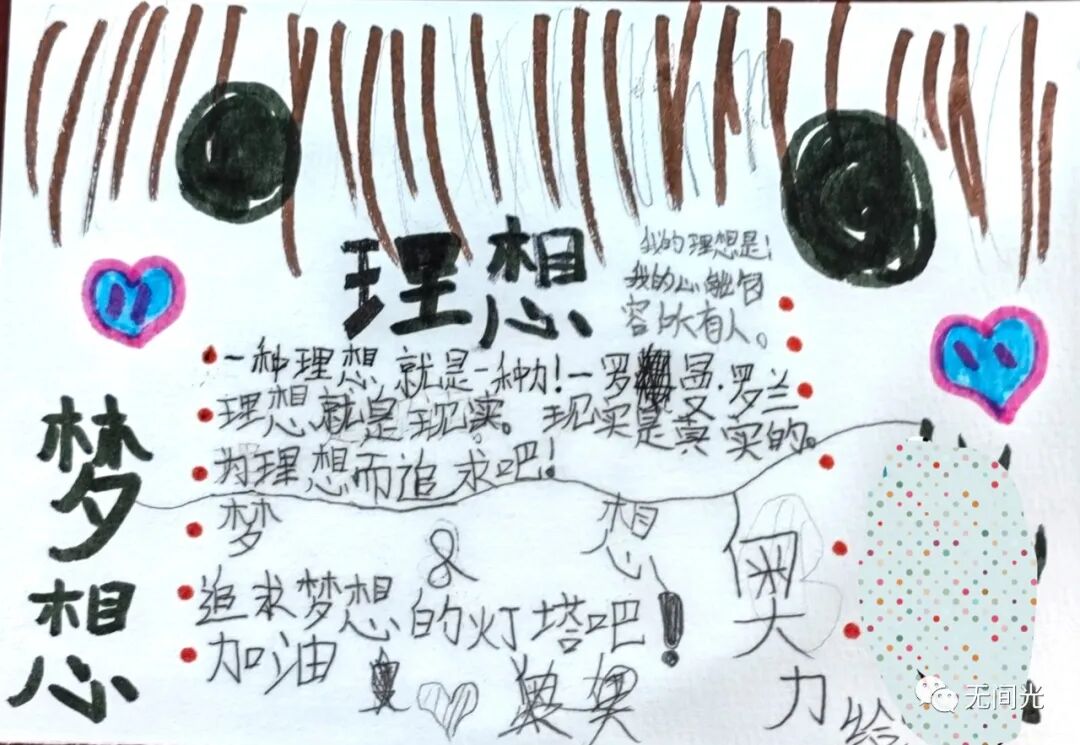 理想
我的理想是!
我的心能包
容的大有人。
一种理想就是一种力!一罗曼.罗兰
理想就是现实。现实是真实的。
为理想而追求吧!
梦想
梦 & 想
追求梦想的灯塔吧!
加油
奥力给
无间光